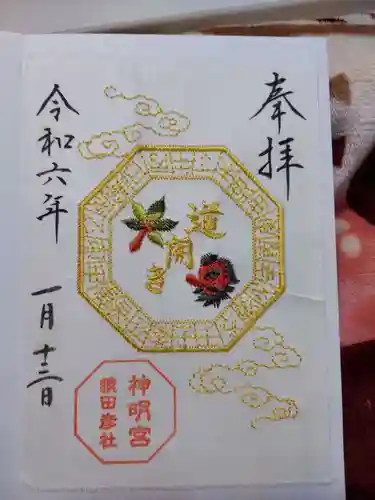 奉拝
道開き
神明宮
猿田彦社
令和六年
一月十三日